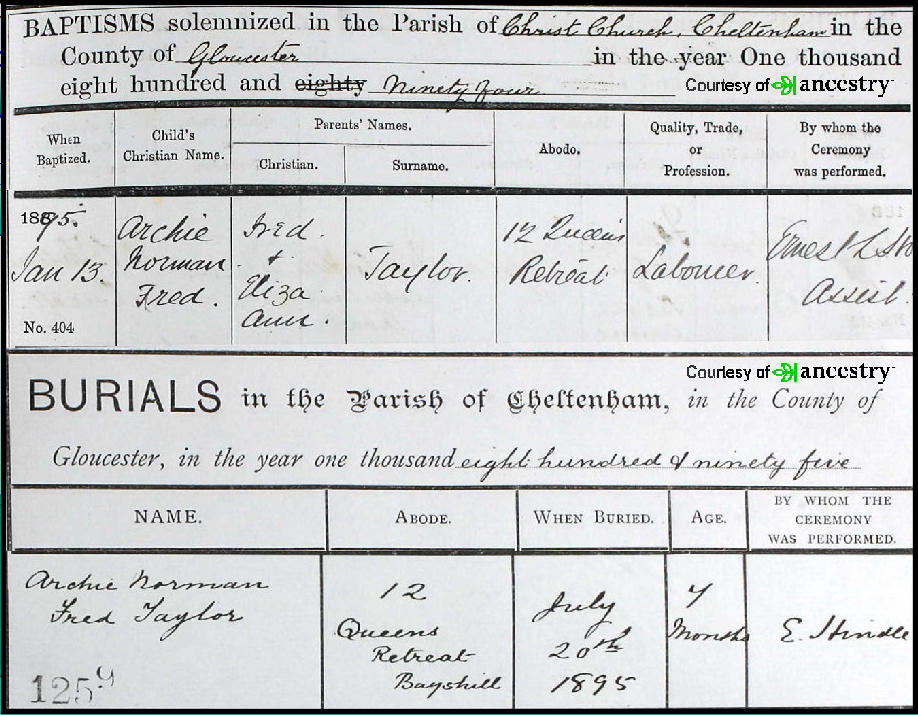 BAPTISMS solemnized in the Parish of Christ Church, Cheltenham in the
County of Gloucester in the year One thousand
eight hundred and eighty Ninety four
Courtesy of ancestry
When Baptized.
Child's Christian Name.
Parents' Names.
Christian.
Surname.
Abode.
Quality, Trade, or Profession.
By whom the Ceremony was performed.
1895.
Jan 13.
No. 404
Archie
Norman
Fred.
Fred.
+
Eliza
Ann.
Taylor.
12 Queens
Retreat
Labourer.
Ernest
Assist.
Courtesy of ancestry
BURIALS in the Parish of Cheltenham, in the County of
Gloucester, in the year one thousand eight hundred & ninety five
NAME.
ABODE.
WHEN BURIED.
AGE.
BY WHOM THE CEREMONY WAS PERFORMED.
Archie Norman
Fred Taylor
1259
12
Queens
Retreat
Bayshill
July
20th
1895
7
Months
E. Hindle